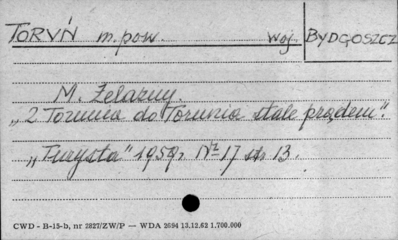 TORUŃ m. pow. woj. BYDGOSZCZ
M. Żelazny
„2 Torunia do Torunia stale prądem”.
„Turysta” 1959r. Nr 17 str 13.
CWD - B-15-b, nr 2827/ZW/P — WDA 2694 13.12.62 1.700.000